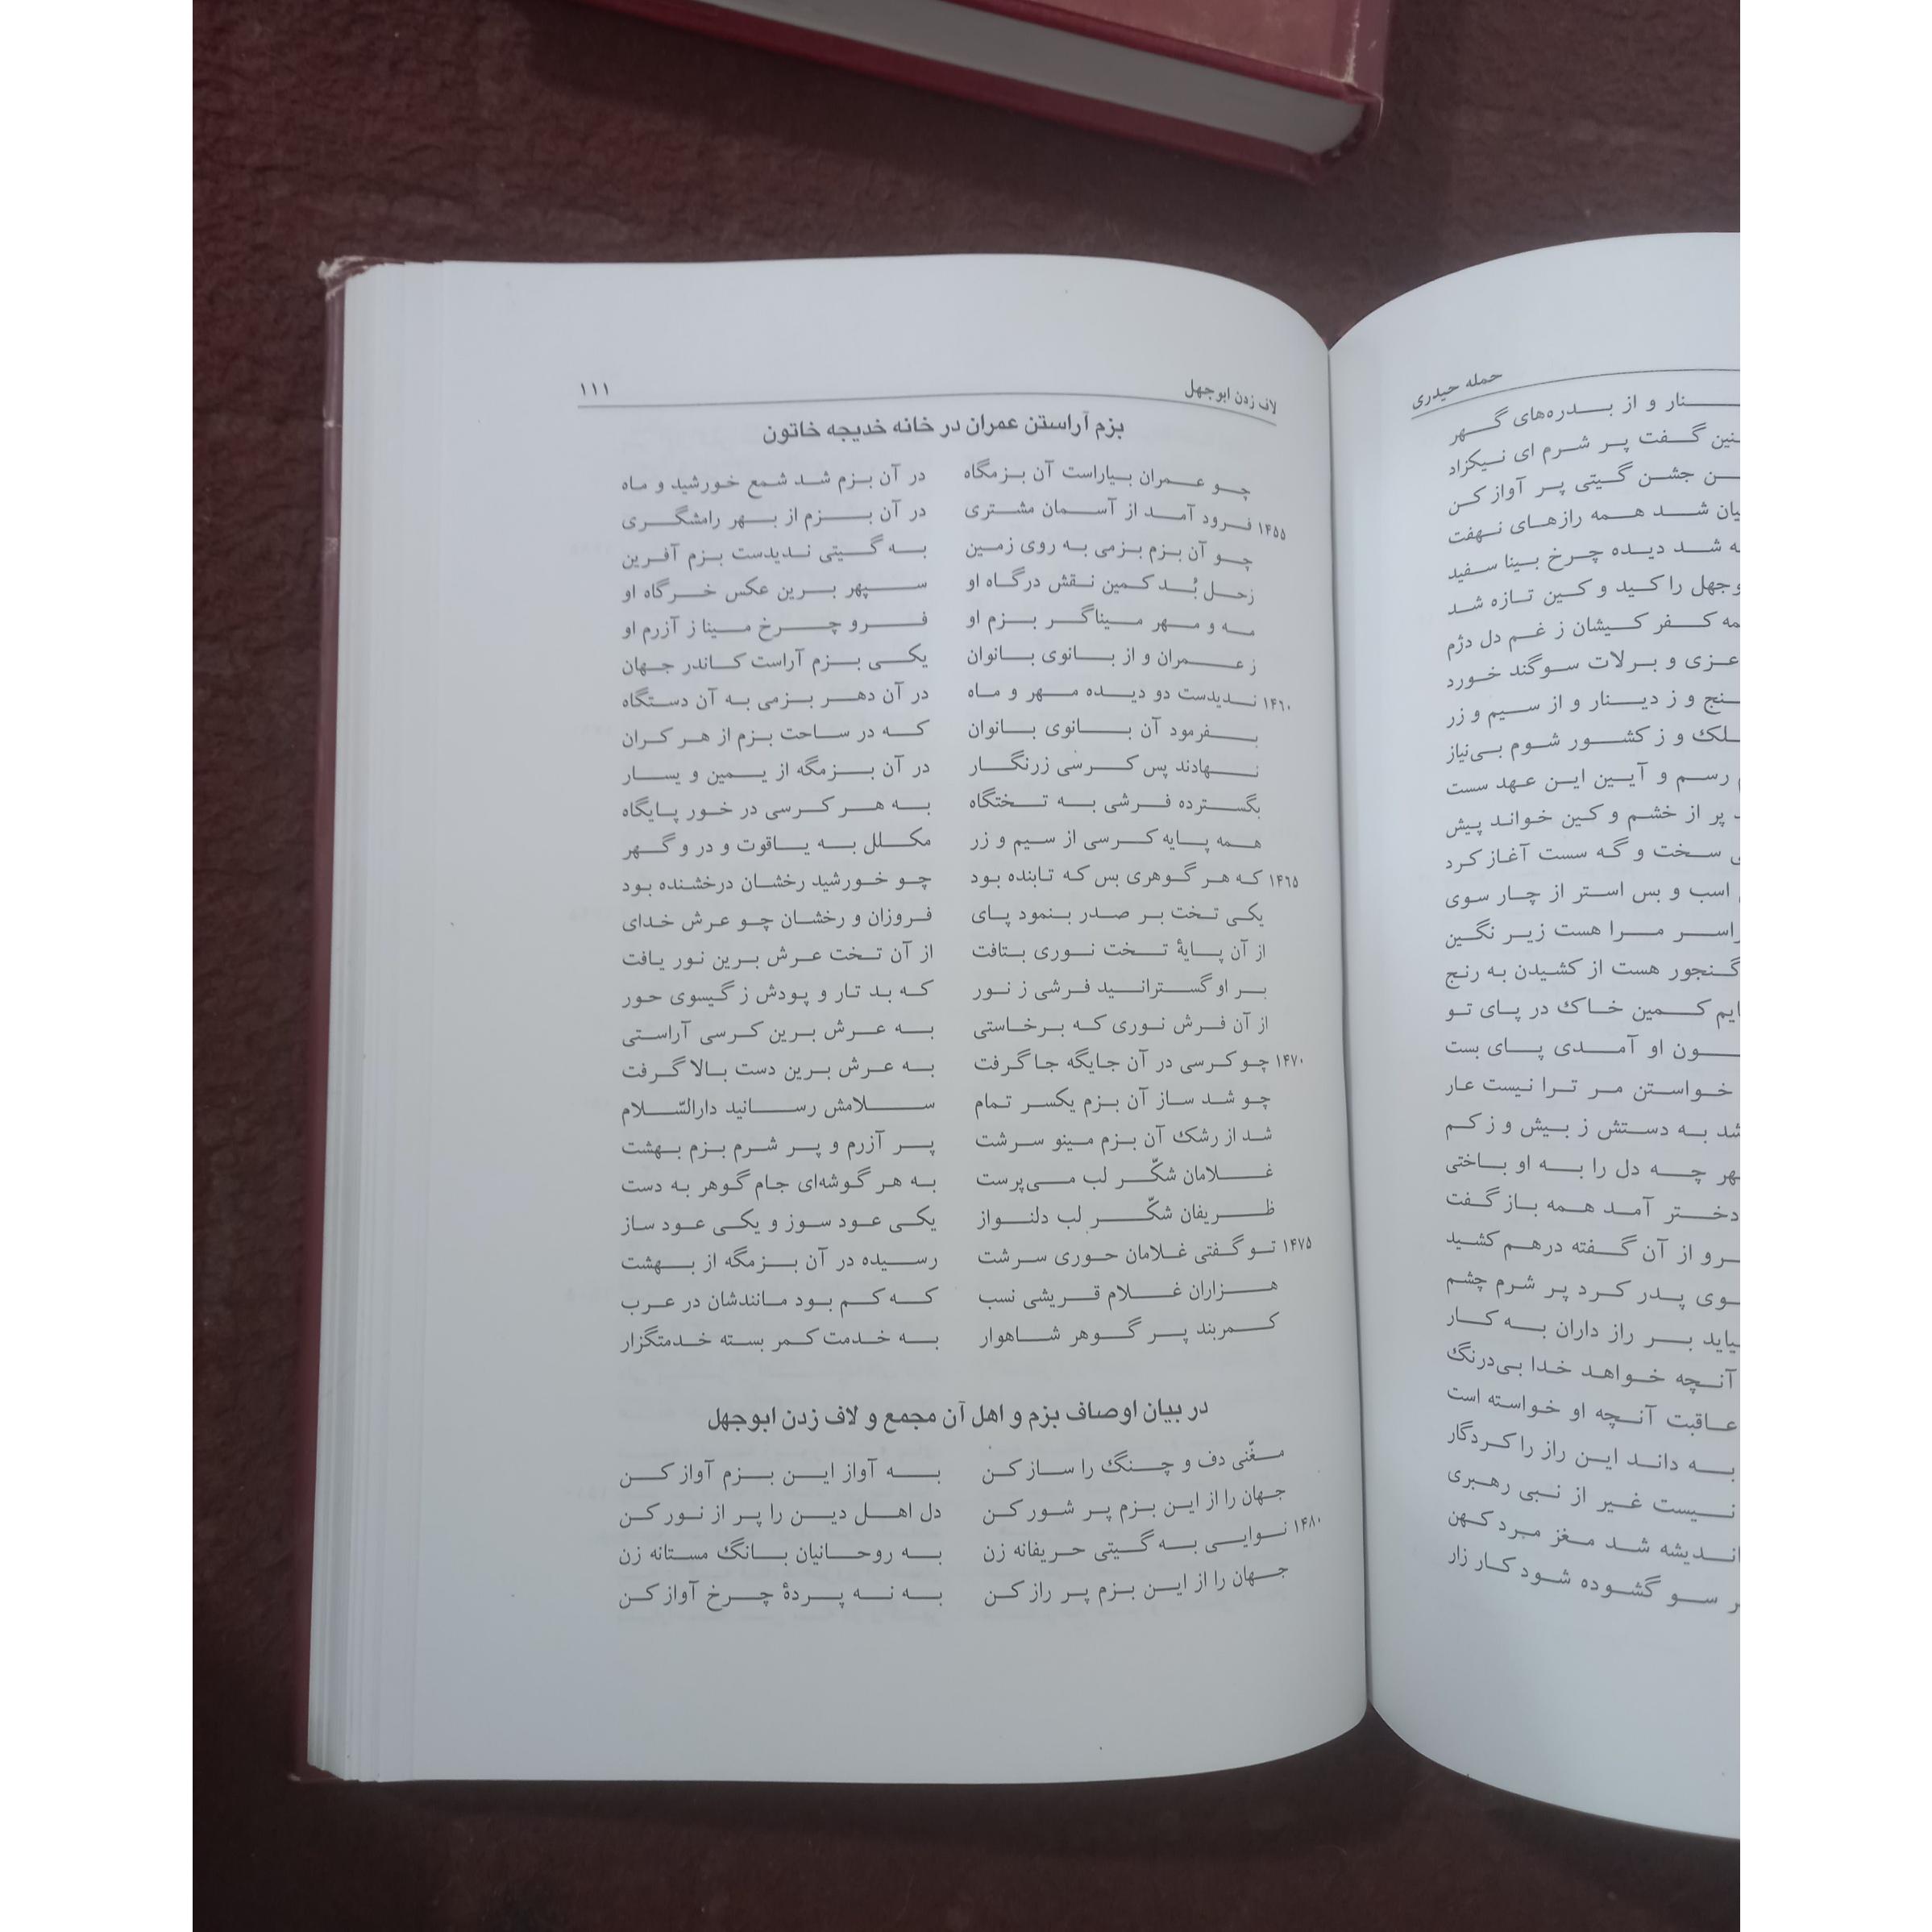 حمله حیدری
نار و از بدره‌های گهر
گفت پر شرم ای نیکزاد
جشن گیتی پر آواز کن
شد همه رازهای نهفت
شد دیده چرخ بینا سفید
را کید و کین تازه شد
کفر کیشان ز غم دل دژم
عزی و برلات سوگند خورد
و ز دینار و از سیم و زر
و ز کشور شوم بی‌نیاز
رسم و آیین این عهد سست
پر از خشم و کین خواند پیش
سخت و گه سست آغاز کرد
اسب و بس استر از چار سوی
مرا هست زیر نگین
گنجور هست از کشیدن به رنج
کمین خاک در پای تو
او آمدی پای بست
خواستن مر ترا نیست عار
به دستش ز بیش و ز کم
چه دل را به او باختی
دختر آمد همه باز گفت
از آن گفته درهم کشید
پدر کرد پر شرم چشم
بر راز داران به کار
آنچه خواهد خدا بی‌درنگ
عاقبت آنچه او خواسته است
به داند این راز را کردگار
نیست غیر از نبی رهبری
شد مغز مرد کهن
سو گشوده شود کار زار
لاف زدن ابوجهل ۱۱۱
بزم آراستن عمران در خانه خدیجه خاتون
چو عمران بیاراست آن بزمگاه در آن بزم شد شمع خورشید و ماه
۱۴۵۵ فرود آمد از آسمان مشتری در آن بزم از بهر رامشگری
چو آن بزم بزمی به روی زمین به گیتی ندیدست بزم آفرین
زحل بُد کمین نقش درگاه او سپهر برین عکس خرگاه او
مه و مهر میناگر بزم او فرو چرخ مینا ز آزرم او
ز عمران و از بانوی بانوان یکی بزم آراست کاندر جهان
۱۴۶۰ ندیدست دو دیده مهر و ماه در آن دهر بزمی به آن دستگاه
بفرمود آن بانوی بانوان که در ساحت بزم از هر کران
نهادند پس کرسی زرنگار در آن بزمگه از یمین و یسار
بگسترده فرشی به تختگاه به هر کرسی در خور پایگاه
همه پایه کرسی از سیم و زر مکلل به یاقوت و در و گهر
۱۴۶۵ که هر گوهری بس که تابنده بود چو خورشید رخشان درخشنده بود
یکی تخت بر صدر بنمود پای فروزان و رخشان چو عرش خدای
از آن پایهٔ تخت نوری بتافت از آن تخت عرش برین نور یافت
بر او گسترانید فرشی ز نور که بد تار و پودش ز گیسوی حور
از آن فرش نوری که برخاستی به عرش برین کرسی آراستی
۱۴۷۰ چو کرسی در آن جایگه جا گرفت به عرش برین دست بالا گرفت
چو شد ساز آن بزم یکسر تمام سلامش رسانید دارالسّلام
شد از رشک آن بزم مینو سرشت پر آزرم و پر شرم بزم بهشت
غلامان شکّر لب می‌پرست به هر گوشه‌ای جام گوهر به دست
ظریفان شکّر لب دلنواز یکی عود سوز و یکی عود ساز
۱۴۷۵ تو گفتی غلامان حوری سرشت رسیده در آن بزمگه از بهشت
هزاران غلام قریشی نسب که کم بود مانندشان در عرب
کمربند پر گوهر شاهوار به خدمت کمر بسته خدمتگزار
در بیان اوصاف بزم و اهل آن مجمع و لاف زدن ابوجهل
مغّنی دف و چنگ را ساز کن به آواز این بزم آواز کن
جهان را از این بزم پر شور کن دل اهل دین را پر از نور کن
۱۴۸۰ نوایی به گیتی حریفانه زن به روحانیان بانگ مستانه زن
جهان را از این بزم پر راز کن به نه پردهٔ چرخ آواز کن